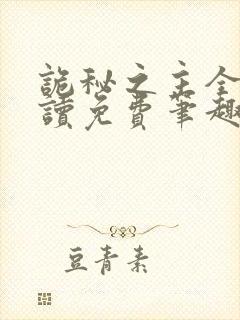 詭秘之主全
讀免費筆趣
豆青素